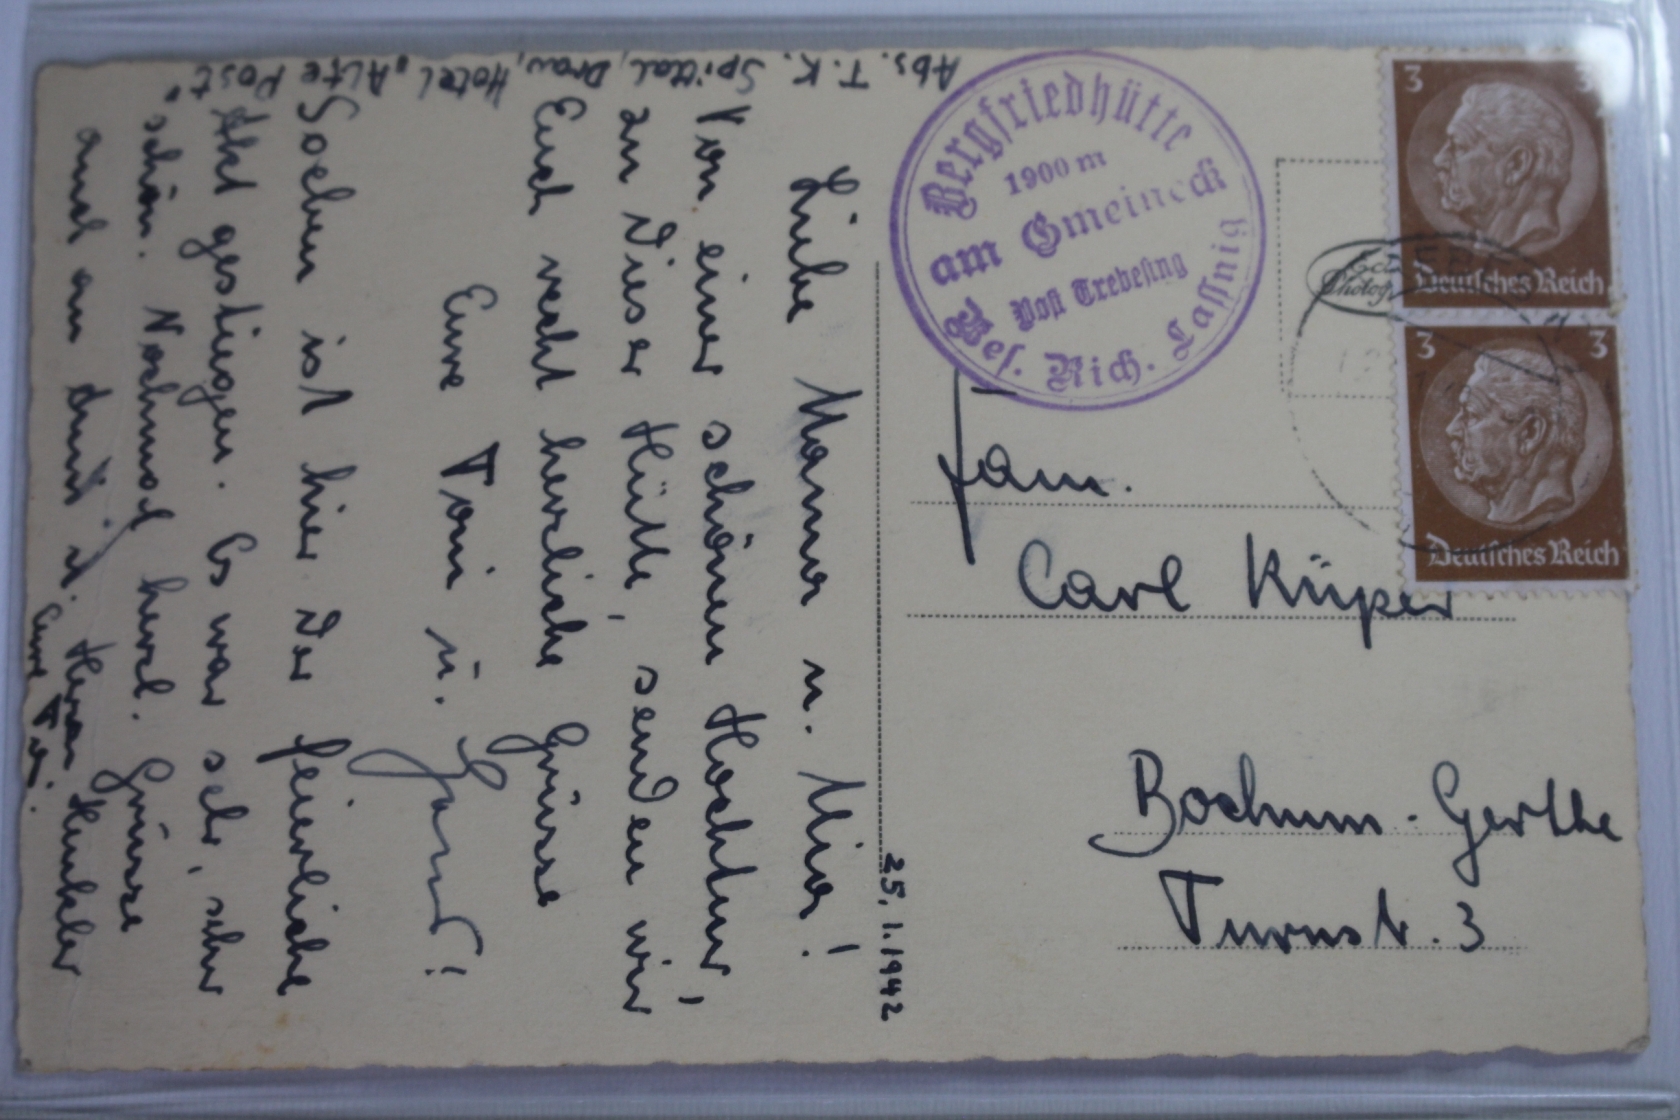 Abs. T. K. Spittal, Drau, Hotel „Alte Post"
25. 1. 1942
Liebe Mama u. Mia!
Von einer schönen Hochtour,
zu dieser Hütte, senden wir
Euch recht herzliche Grüsse
Eure Toni u.
Soeben ist hier der feierliche
Akt gestiegen. Es war sehr, sehr
schön. Nochmal herzl. Grüsse
auch an
Eure Toni.
Bergfriedhütte
1900 m
am Gmeineck
Post Trebesing
Bes. Rich. Lassnig
3 3
Deutsches Reich
3 3
Deutsches Reich
Fam.
Carl Küper
Bochum-Gerthe
Turnstr. 3